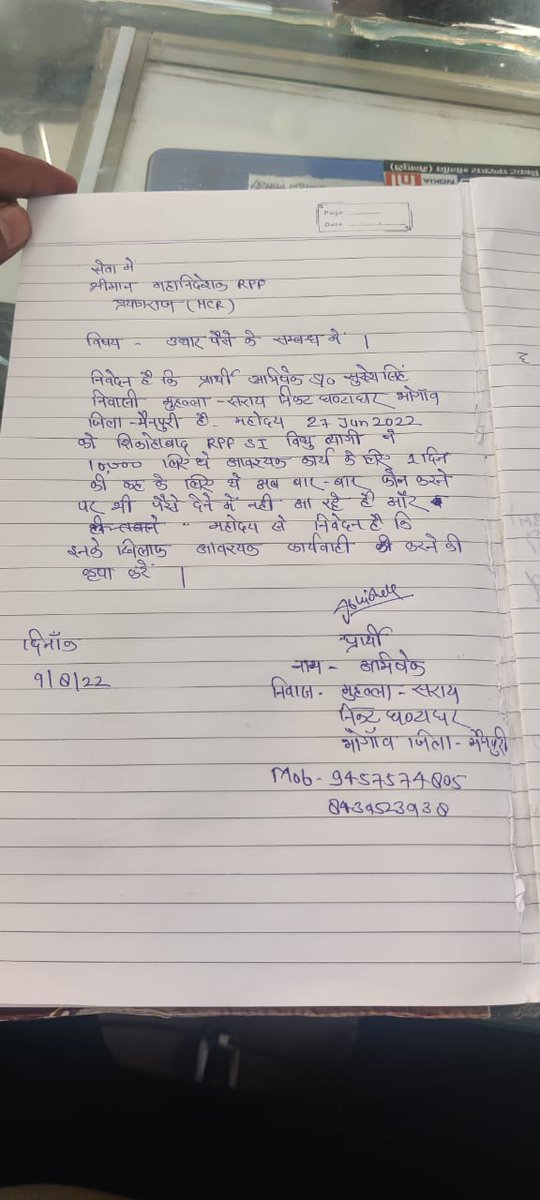 Page
Date
सेवा में
श्रीमान महानिदेशक RPF
प्रयागराज (NCR)
विषय - उधार पैसे के सम्बन्ध में |
निवेदन है कि प्रार्थी अभिषेक S/o सुरेश सिंह
निवासी मुहल्ला - सराय निकट घण्टाघर भोगाँव
जिला - मैनपुरी है. महोदय 27 Jun 2022
को शिकोहाबाद RPF SI विधु त्यागी ने
10,000 लिए थे आवश्यक कार्य के लिए 1 दिन
की कह के लिए थे अब बार-बार फोन करने
पर भी पैसे देने में नही आ रहे है और
महोदय से निवेदन है कि
इनके खिलाफ आवश्यक कार्यवाही करने की
कृपा करें |
Abhishek
प्रार्थी
दिनाँक
नाम - अभिषेक
9/8/22
निवास - मुहल्ला - सराय
निकट घण्टाघर
भोगाँव जिला - मैनपुरी
Mob - 9457574805
8439523938
NOKIA